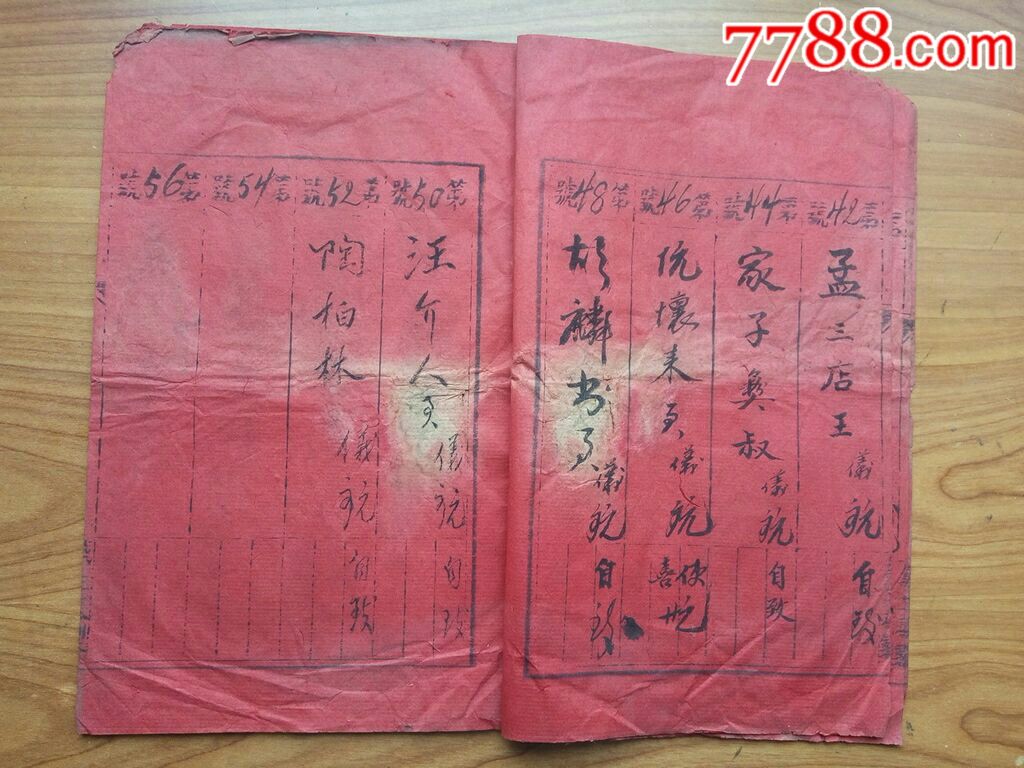 7788.com
第42號
孟三店王 儀
自致
第44號
家子彝叔 儀
自致
第46號
壞来 儀
使
喜
第48號
胡麟书 儀
自致
第50號
汪介人 儀
自致
第52號
陶柏林 儀
自致
第54號
第56號